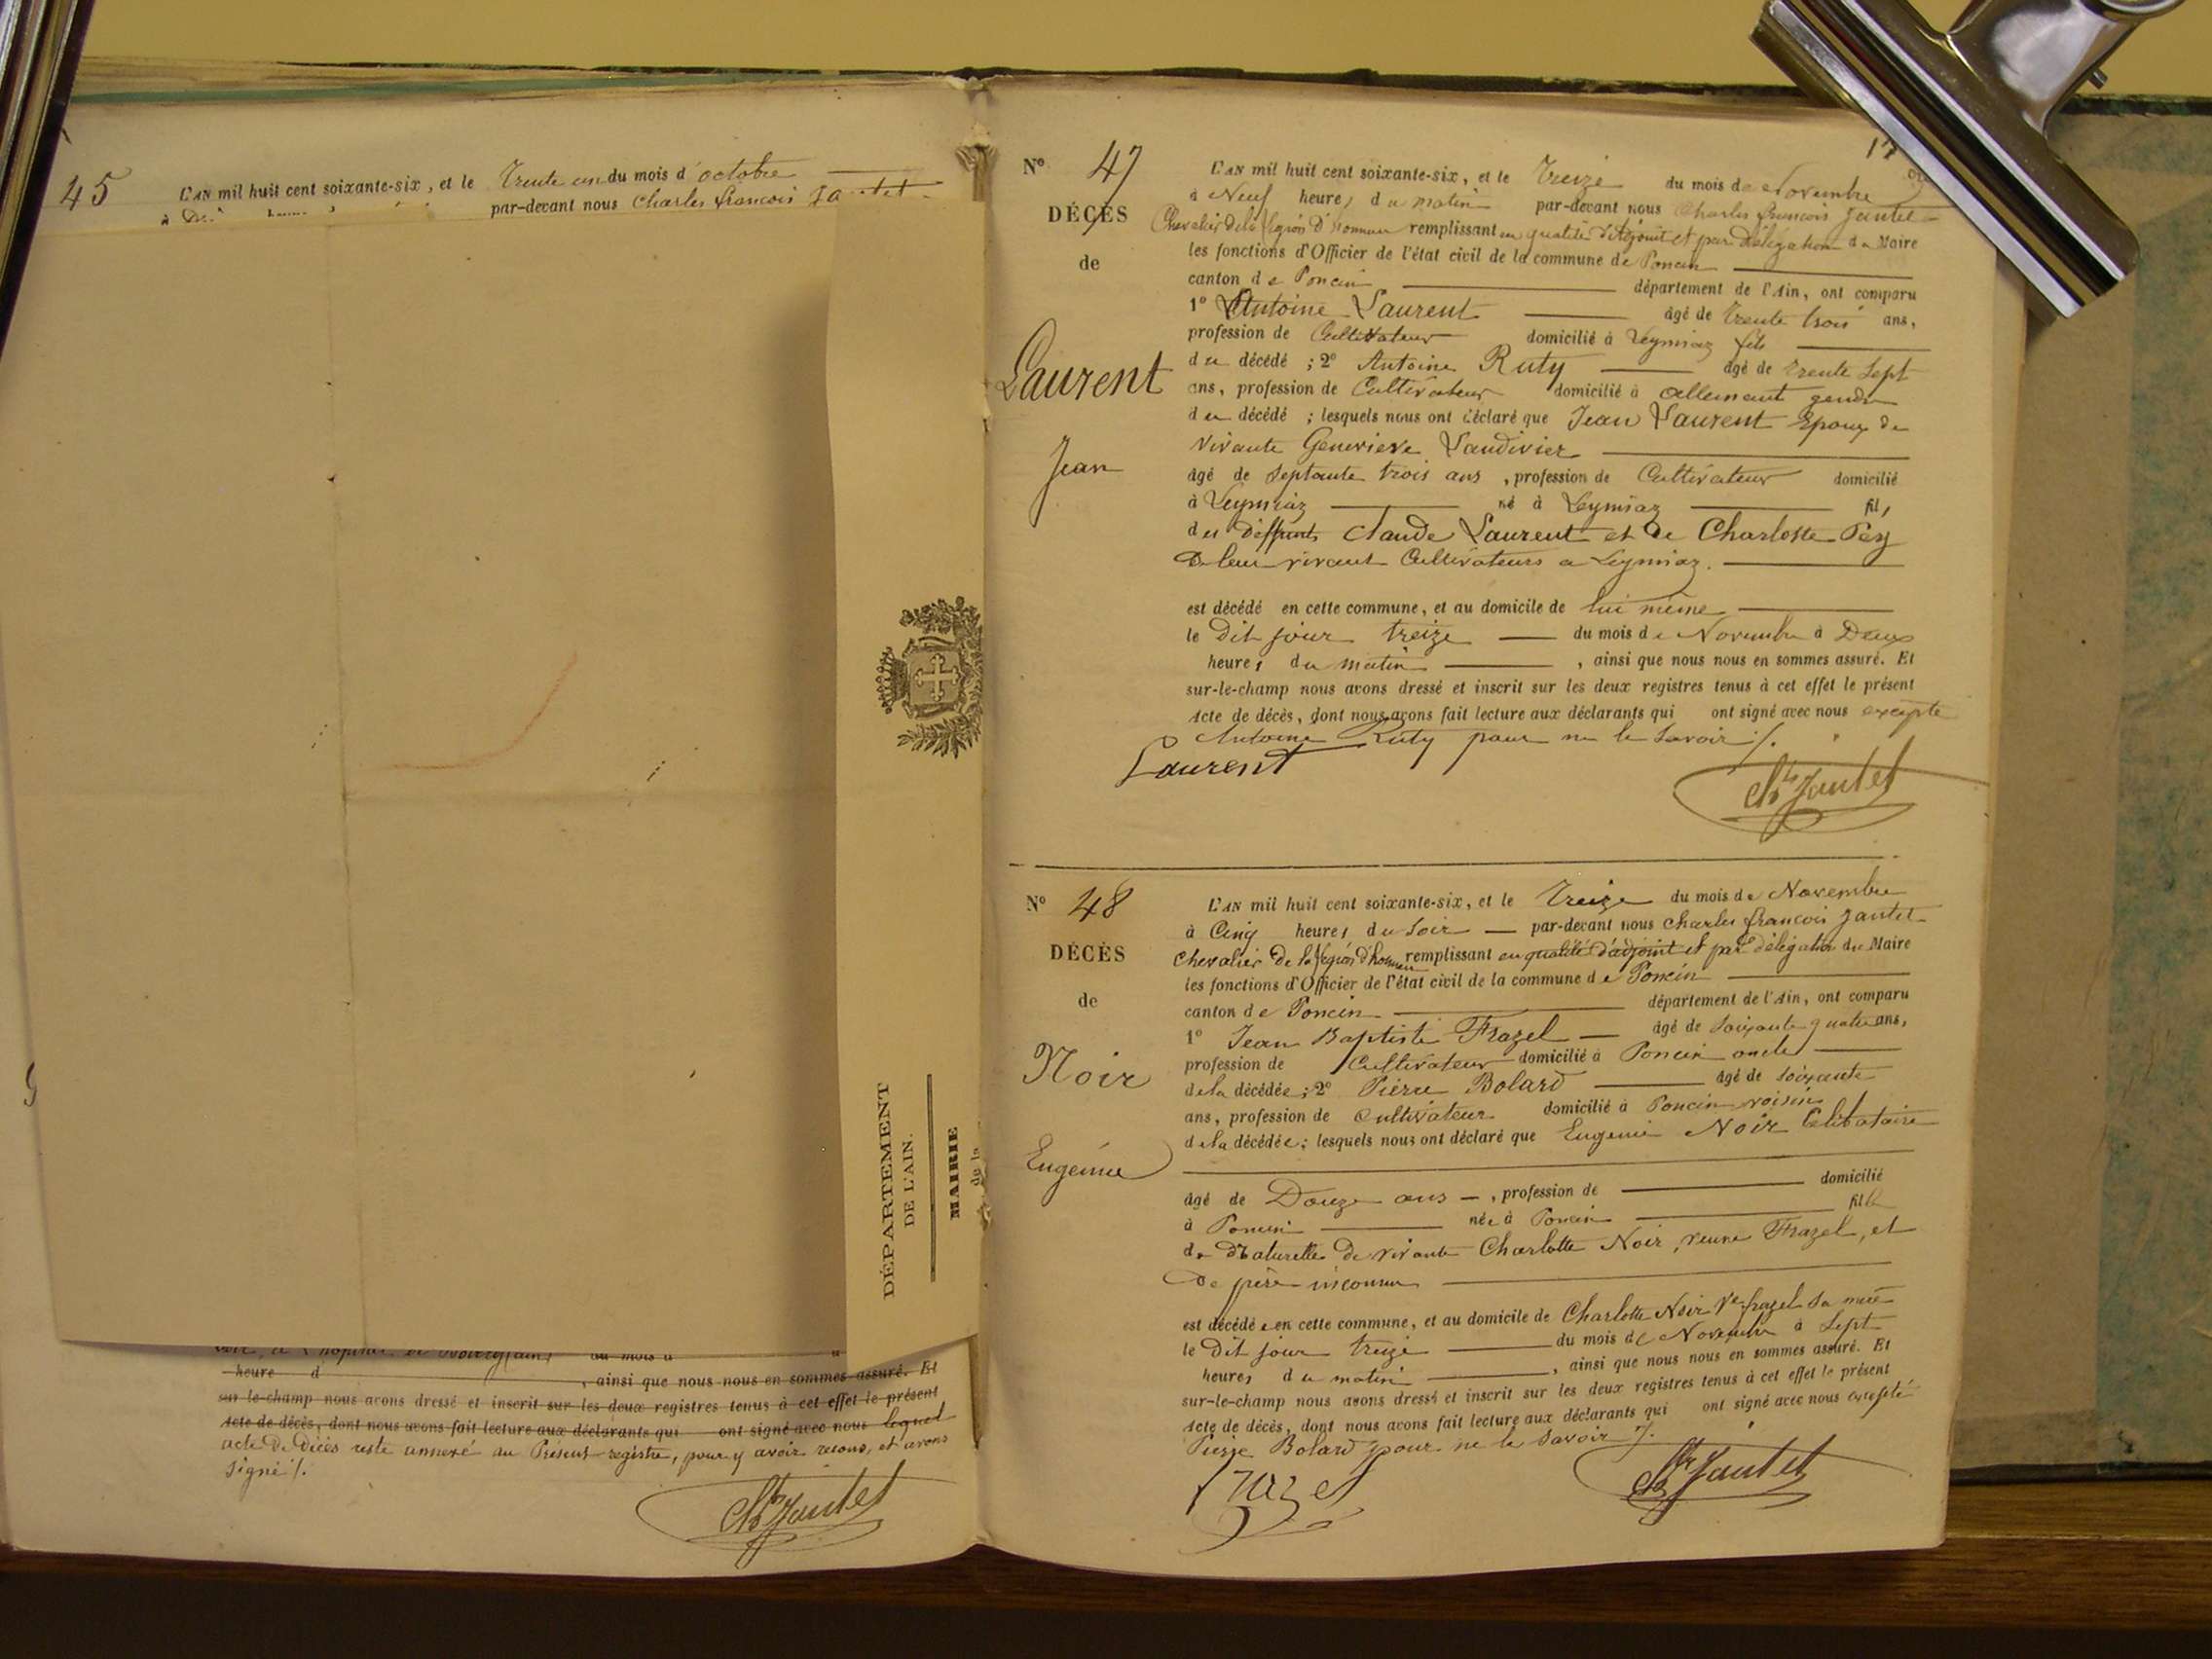 45
L'AN mil huit cent soixante-six, et le Trente un du mois d'octobre
par-devant nous Charles francois
DÉPARTEMENT
DE L'AIN.
MAIRIE
de la
heure d , ainsi que nous nous en sommes assuré. Et
sur-le-champ nous avons dressé et inscrit sur les deux registres tenus à cet effet le présent
Acte de décès, dont nous avons fait lecture aux déclarants qui ont signé avec nous lequel
acte de décès reste annexé au Présent registre, pour y avoir recours, et avons
signé /.
Ch Jantet
Nº 47
DÉCÈS
de
Laurent
Jean
L'AN mil huit cent soixante-six, et le Treize du mois de Novembre
à Neuf heures du matin par-devant nous Charles francois Jantet
Chevalier de la légion d'honneur remplissant en qualité d'adjoint et par délégation du Maire
les fonctions d'Officier de l'état civil de la commune de Poncin
canton de Poncin département de l'Ain, ont comparu
1º Antoine Laurent âgé de trente trois ans,
profession de Cultivateur domicilié à Leymiaz fils
du décédé ; 2º Antoine Ruty âgé de trente sept
ans, profession de Cultivateur domicilié à allement gendre
du décédé ; lesquels nous ont déclaré que Jean Laurent Epoux de
vivante Genevieve Vaudivier
âgé de septante trois ans , profession de Cultivateur domicilié
à Leymiaz né à Leymiaz fils
des deffunts Claude Laurent et de Charlotte
de leur vivant Cultivateurs a Leymiaz.
est décédé en cette commune, et au domicile de lui même
le dit jour treize du mois de Novembre à Deux
heures du matin , ainsi que nous nous en sommes assuré. Et
sur-le-champ nous avons dressé et inscrit sur les deux registres tenus à cet effet le présent
Acte de décès, dont nous avons fait lecture aux déclarants qui ont signé avec nous excepte
Antoine Ruty pour ne le savoir /.
Laurent
Ch Jantet
Nº 48
DÉCÈS
de
Noir
Eugénie
L'AN mil huit cent soixante-six, et le Treize du mois de Novembre
à Cinq heures du Soir par-devant nous Charles francois Jantet
Chevalier de la légion d'honneur remplissant en qualité d'adjoint et par délégation du Maire
les fonctions d'Officier de l'état civil de la commune de Poncin
canton de Poncin département de l'Ain, ont comparu
1º Jean Baptiste Frazel âgé de soixante quatre ans,
profession de Cultivateur domicilié à Poncin oncle
de la décédée ; 2º Pierre Bolard âgé de soixante
ans, profession de cultivateur domicilié à Poncin voisin
de la décédée ; lesquels nous ont déclaré que Eugenie Noir Celibataire
âgé de Douze ans , profession de domicilié
à Poncin née à Poncin fille
de Naturelle de vivante Charlotte Noir, veuve Frazel, et
de père inconnu
est décédée en cette commune, et au domicile de Charlotte Noir Ve frazel sa mère
le dit jour treize du mois de Novembre à Sept
heures du matin , ainsi que nous nous en sommes assuré. Et
sur-le-champ nous avons dressé et inscrit sur les deux registres tenus à cet effet le présent
Acte de décès, dont nous avons fait lecture aux déclarants qui ont signé avec nous excepté
Pierre Bolard pour ne le savoir /.
frazel
Ch Jantet